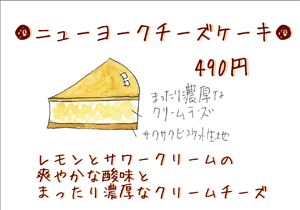 ニューヨークチーズケーキ
490円
まったり濃厚な
クリームチーズ
サクサクビスケット生地
レモンとサワークリームの
爽やかな酸味と
まったり濃厚なクリームチーズ